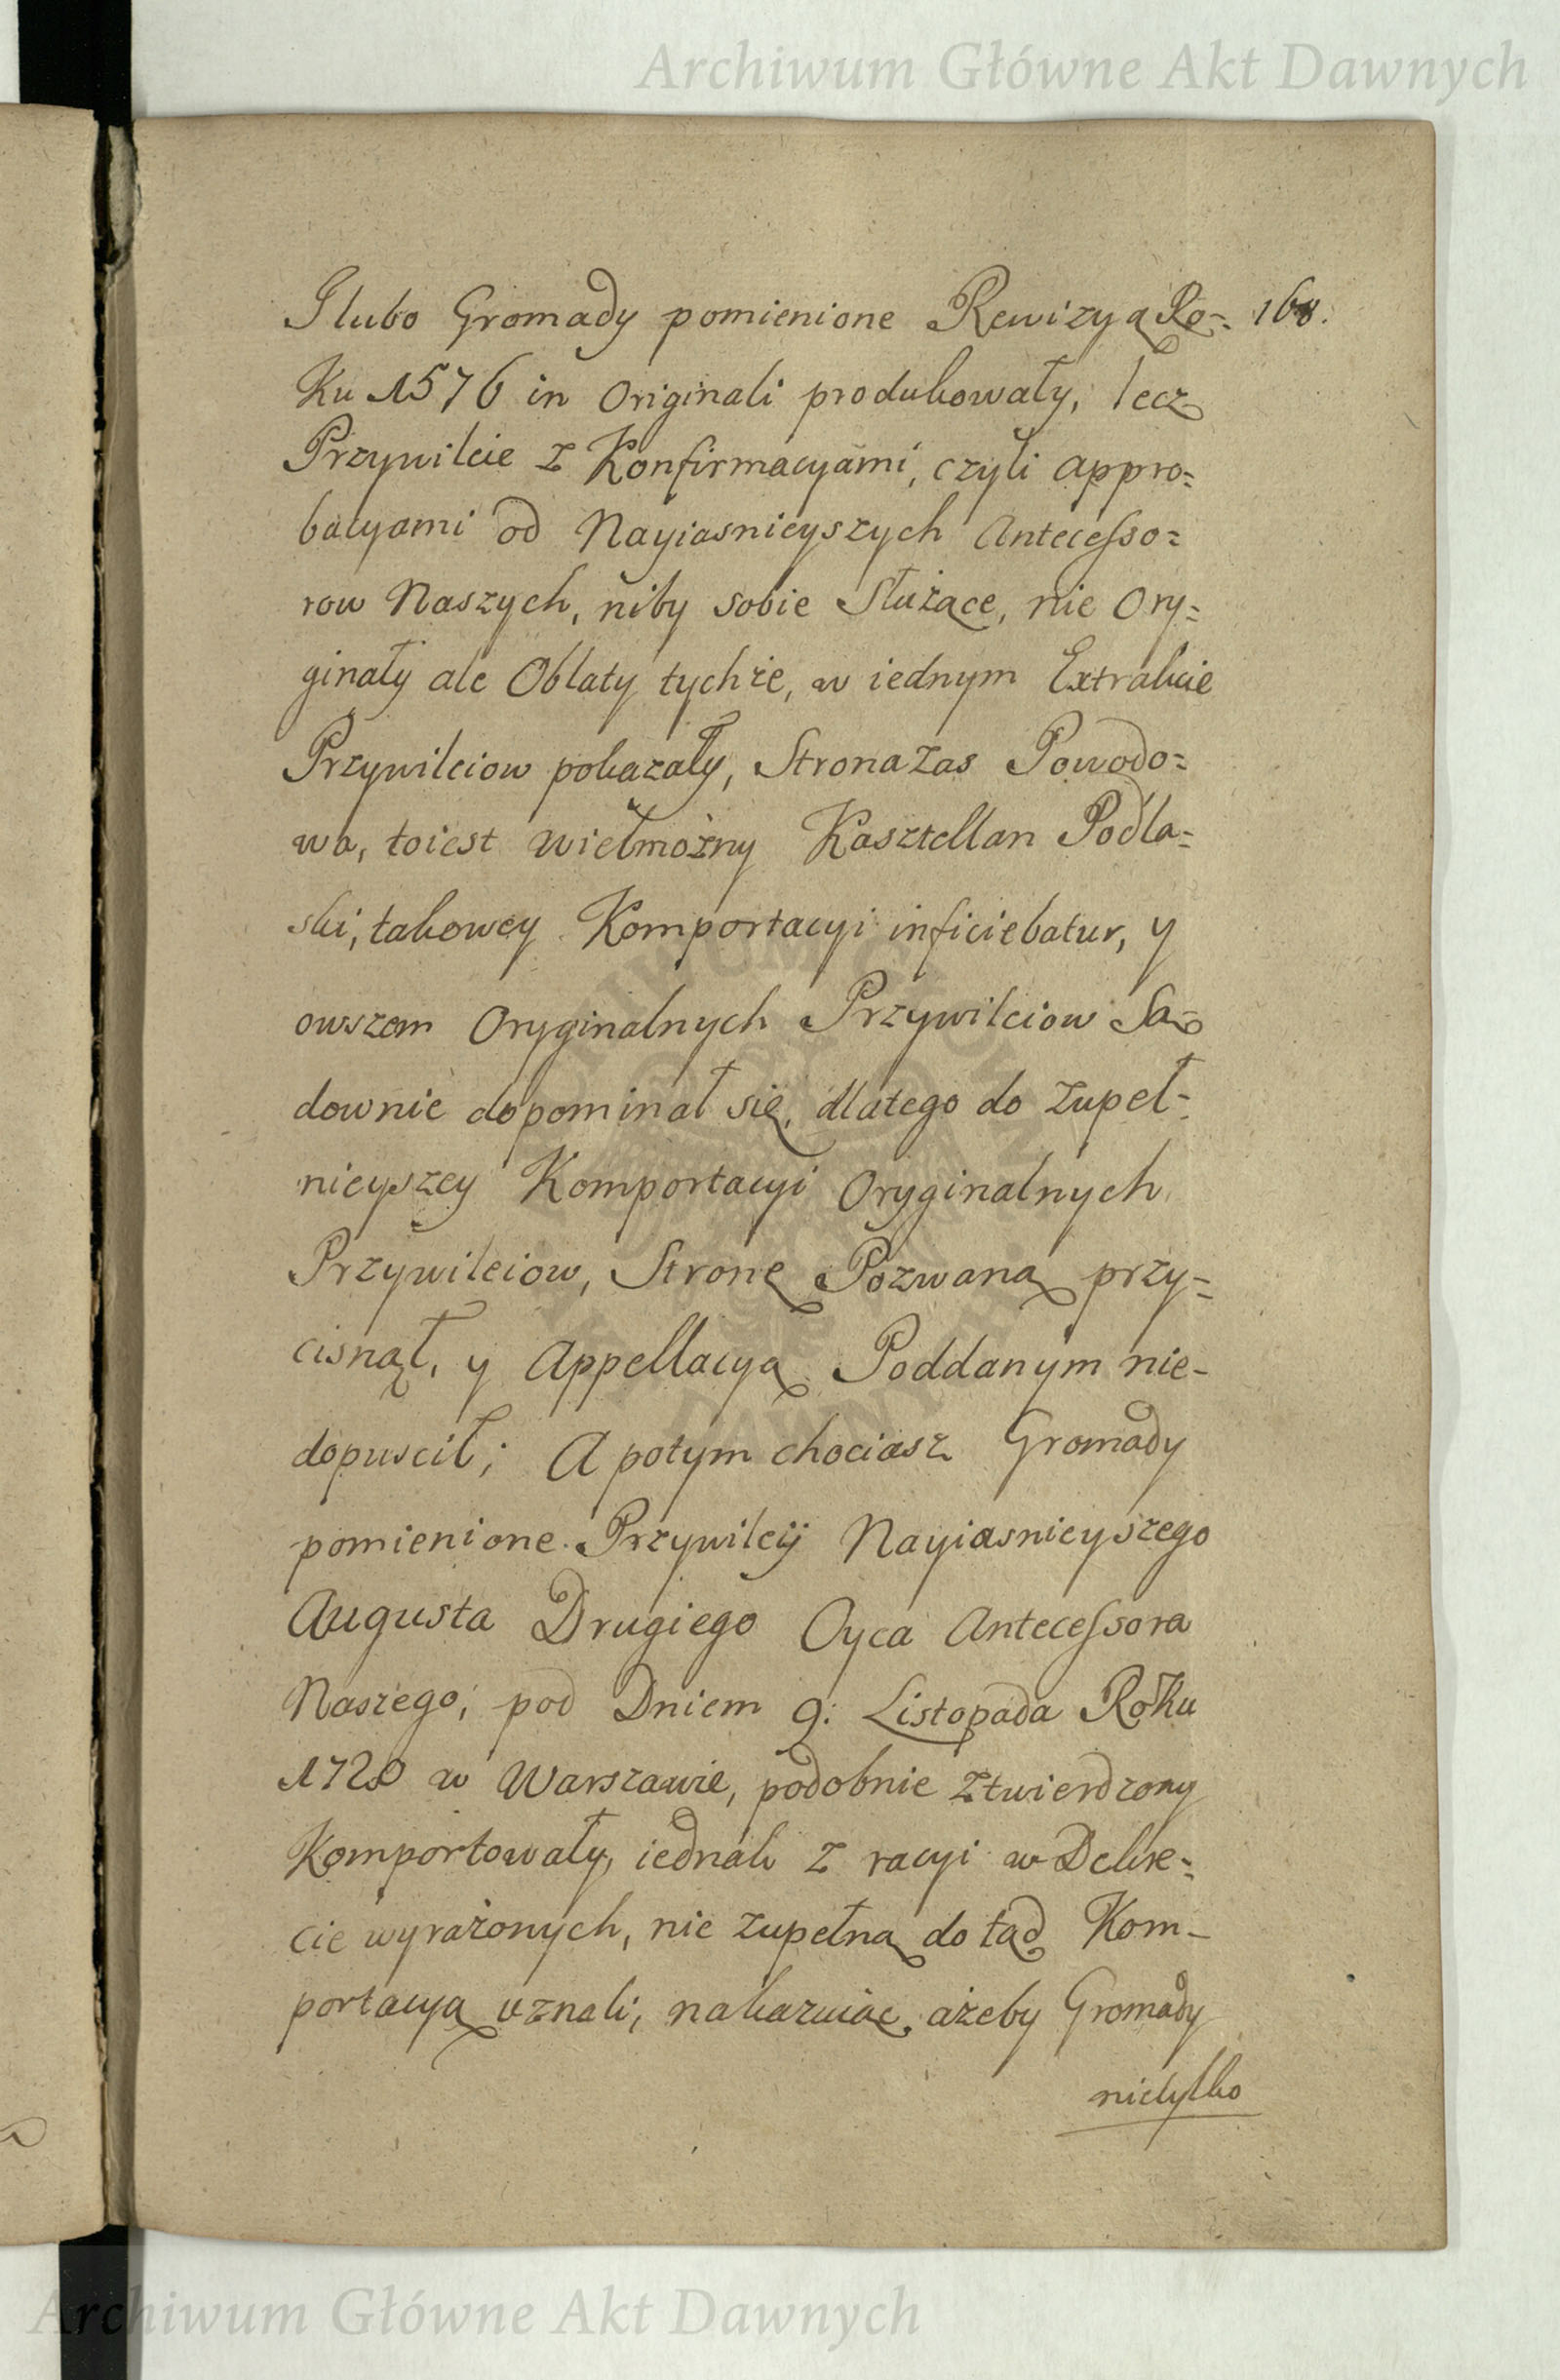 Archiwum Główne Akt Dawnych
I lubo Gromady pomienione Rewizyą Ro= 168.
Ku 1576 in Originali produkowały, lecz
Przywileie z Konfirmacyami, czyli appro=
bacyami od Nayiasnieyszych Antecesso=
row Naszych, niby sobie Służące, nie Ory=
ginały ale Oblaty tychże, w iednym Extrakcie
Przywileiow pokazały, Strona zas Powodo=
wa, toiest Wielmożny Kasztellan Podla=
ski, takowey Komportacyi inficiebatur, y
owszem Oryginalnych Przywileiow Są=
downie dopominał się, dlatego do zupeł=
nieyszey Komportacyi Oryginalnych
Przywileiow, Stronę Pozwaną przy=
cisnął, y Appellacyą Poddanym nie=
dopuscił; A potym chociasz Gromady
pomienione Przywileij Nayiasnieyszego
Augusta Drugiego Oyca Antecessora
Naszego, pod Dniem 9: Listopada Roku
1720 w Warszawie, podobnie ztwierdzony
Komportowały, iednak z racyi w Dekre=
cie wyrażonych, nie zupełną do tąd Kom=
portacyą uznali, nakazuiąc, ażeby Gromady
nietylko
Archiwum Główne Akt Dawnych